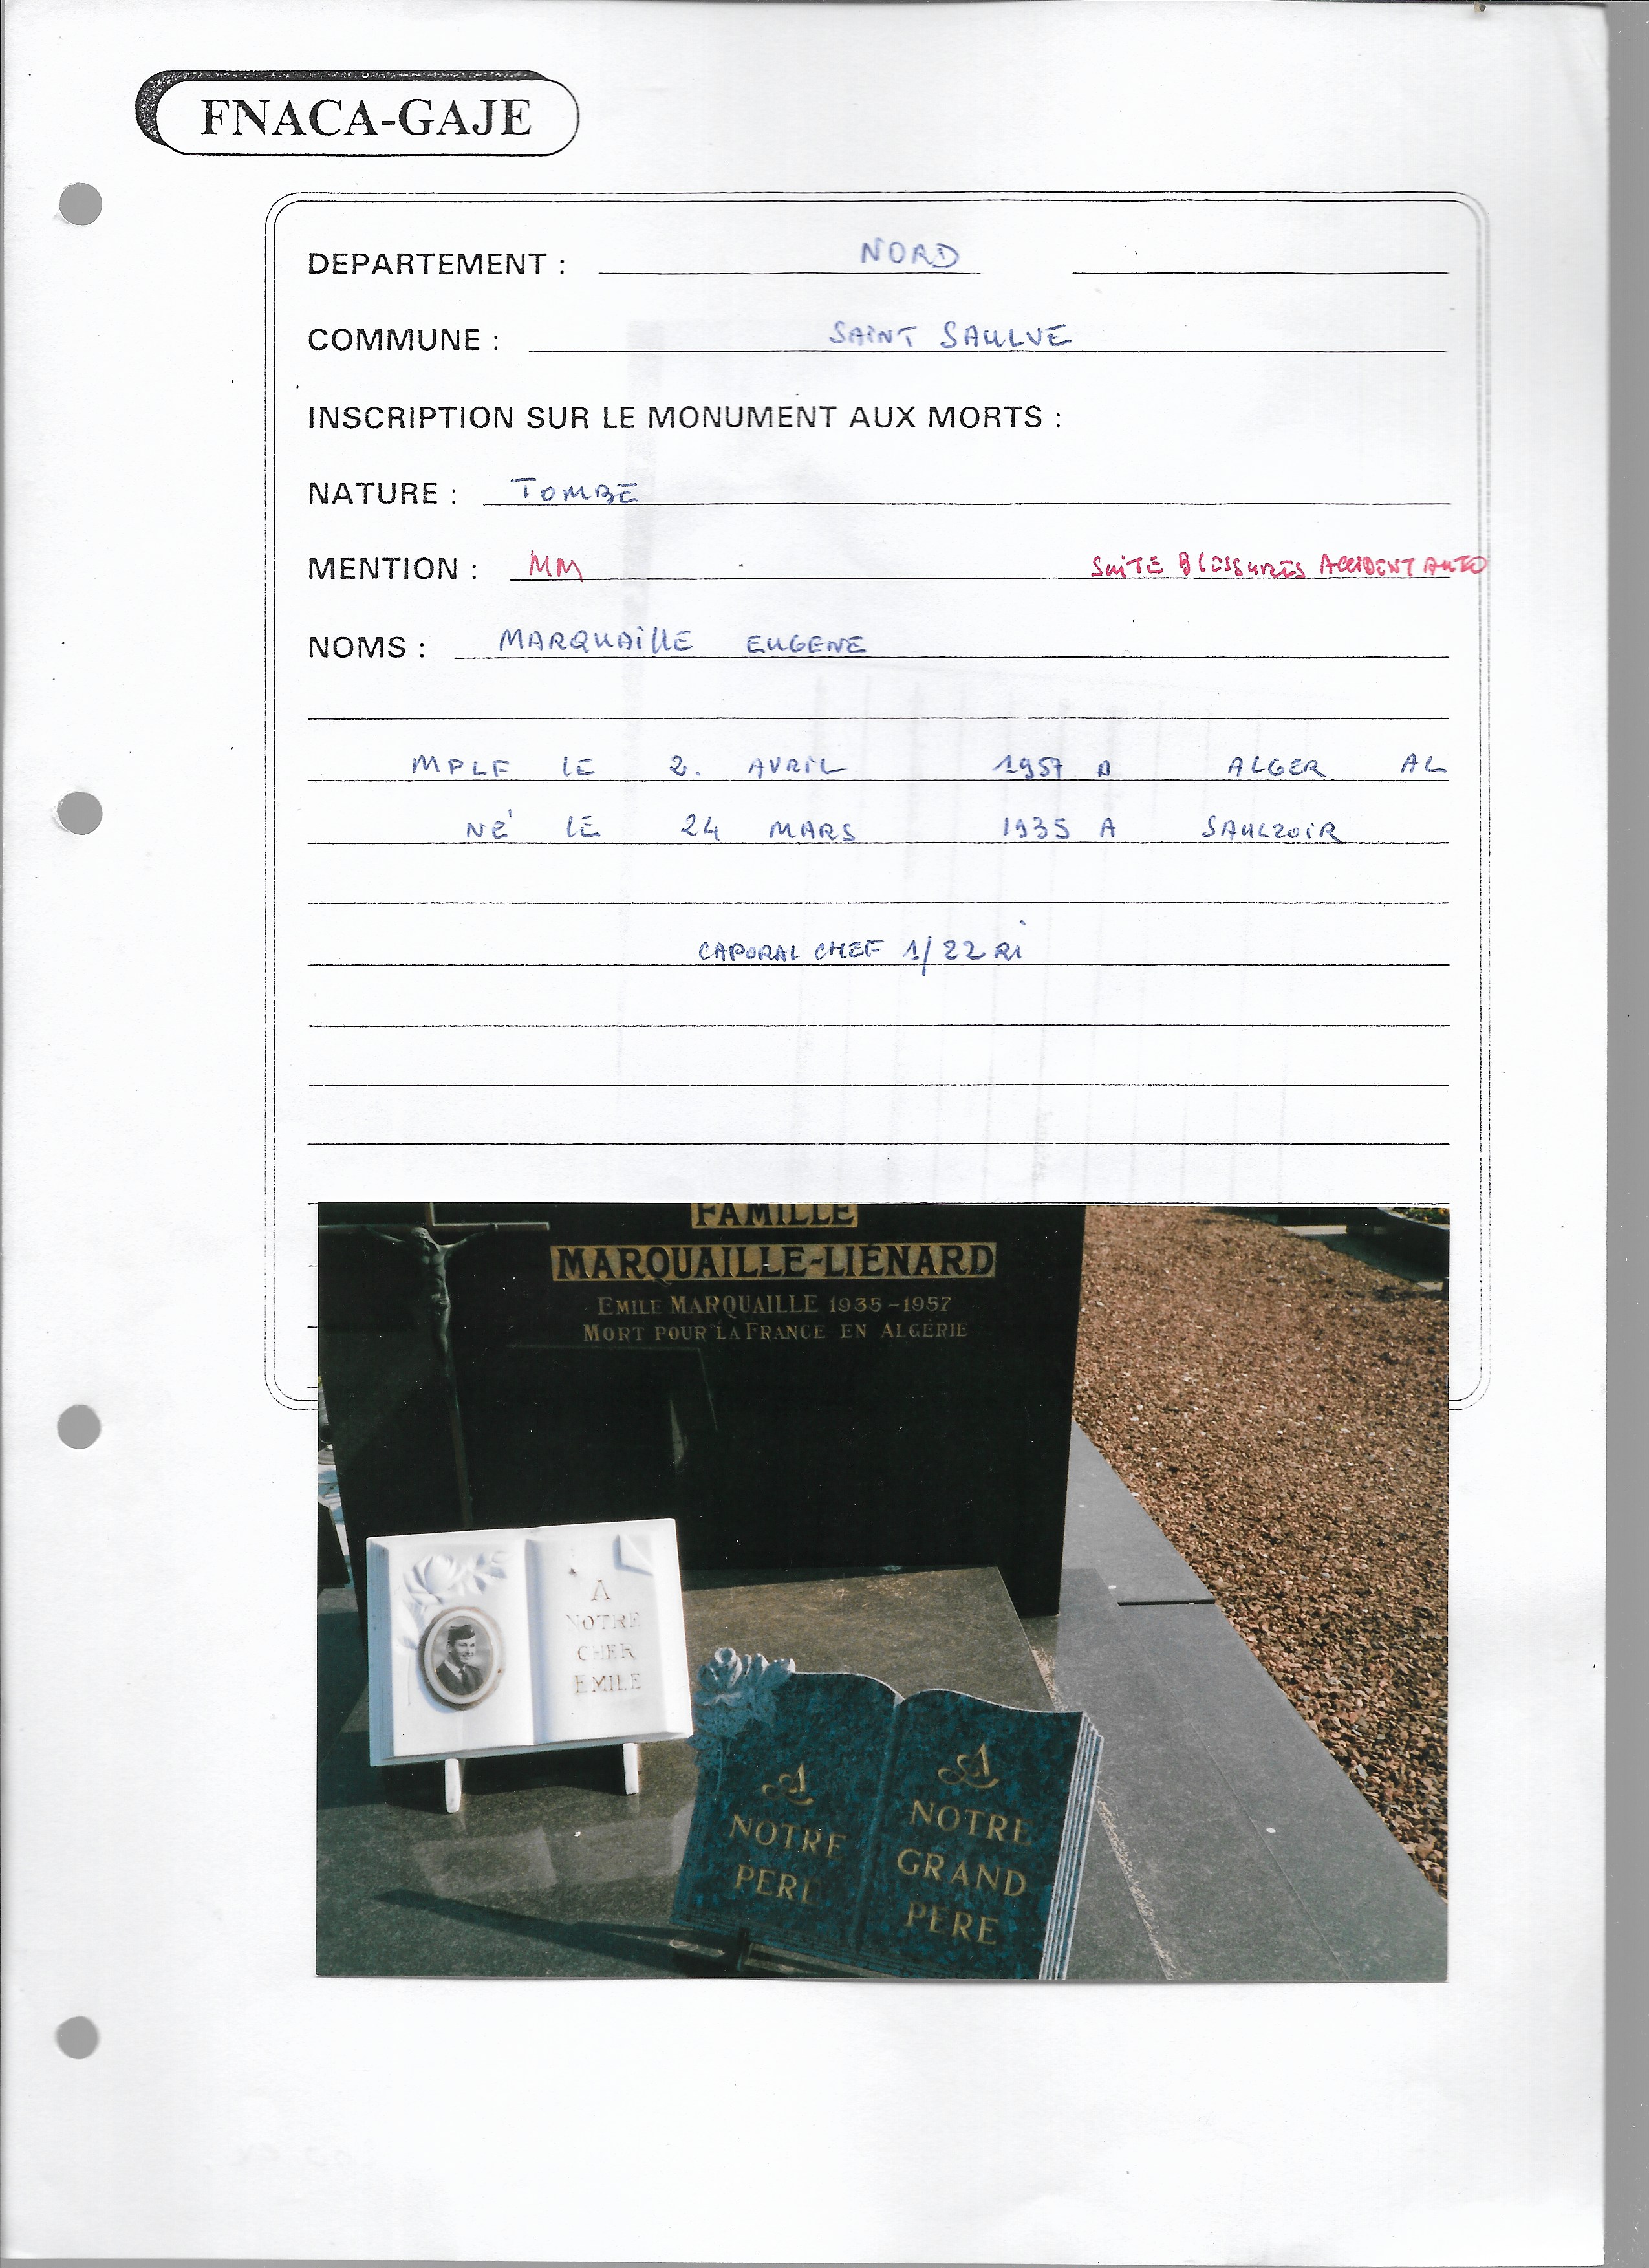 FNACA-GAJE
DEPARTEMENT : NORD
COMMUNE : SAINT SAULVE
INSCRIPTION SUR LE MONUMENT AUX MORTS :
NATURE : TOMBE
MENTION : MM SUITE BLESSURES ACCIDENT AUTO
NOMS : MARQUAILLE EUGENE
MPLF LE 2. AVRIL 1957 A ALGER AL
NÉ LE 24 MARS 1935 A SAULZOIR
CAPORAL CHEF 1/22 RI
FAMILLE
MARQUAILLE-LIÉNARD
EMILE MARQUAILLE 1935-1957
MORT POUR LA FRANCE EN ALGÉRIE
A
NOTRE
CHER
EMILE
A
NOTRE
PERE
A
NOTRE
GRAND
PÈRE